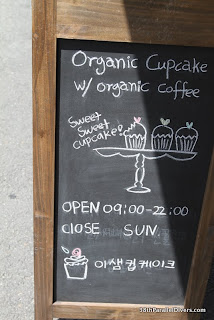 Organic Cupcake
w/ organic coffee
Sweet
Sweet
cupcake!
OPEN 09:00-22:00
ClOSE SUN.
이샘컵케이크
38thParallelDivers.com